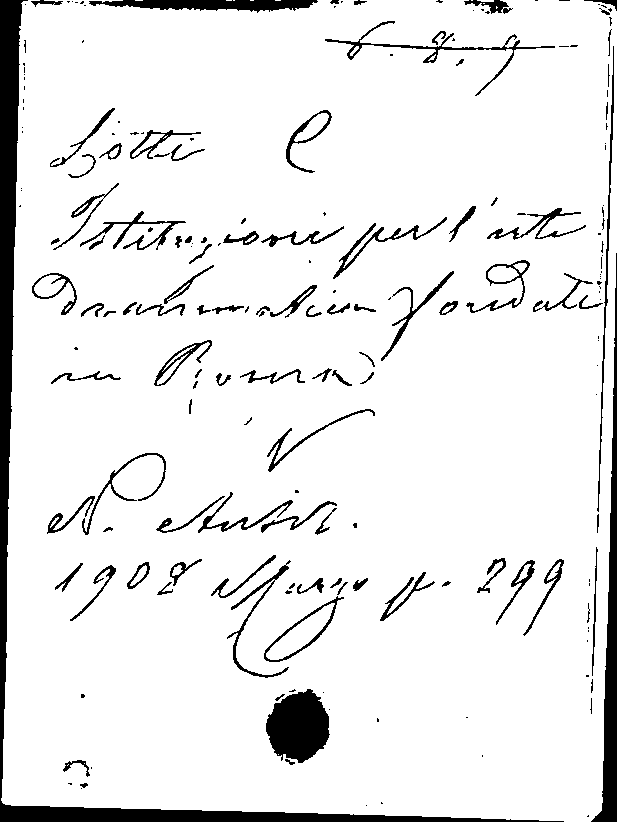 6. 8. 9
Lotti C
Istituzioni per l'arte
drammatica fondate
in Roma
V
N. Antol.
1908 Marzo p. 299